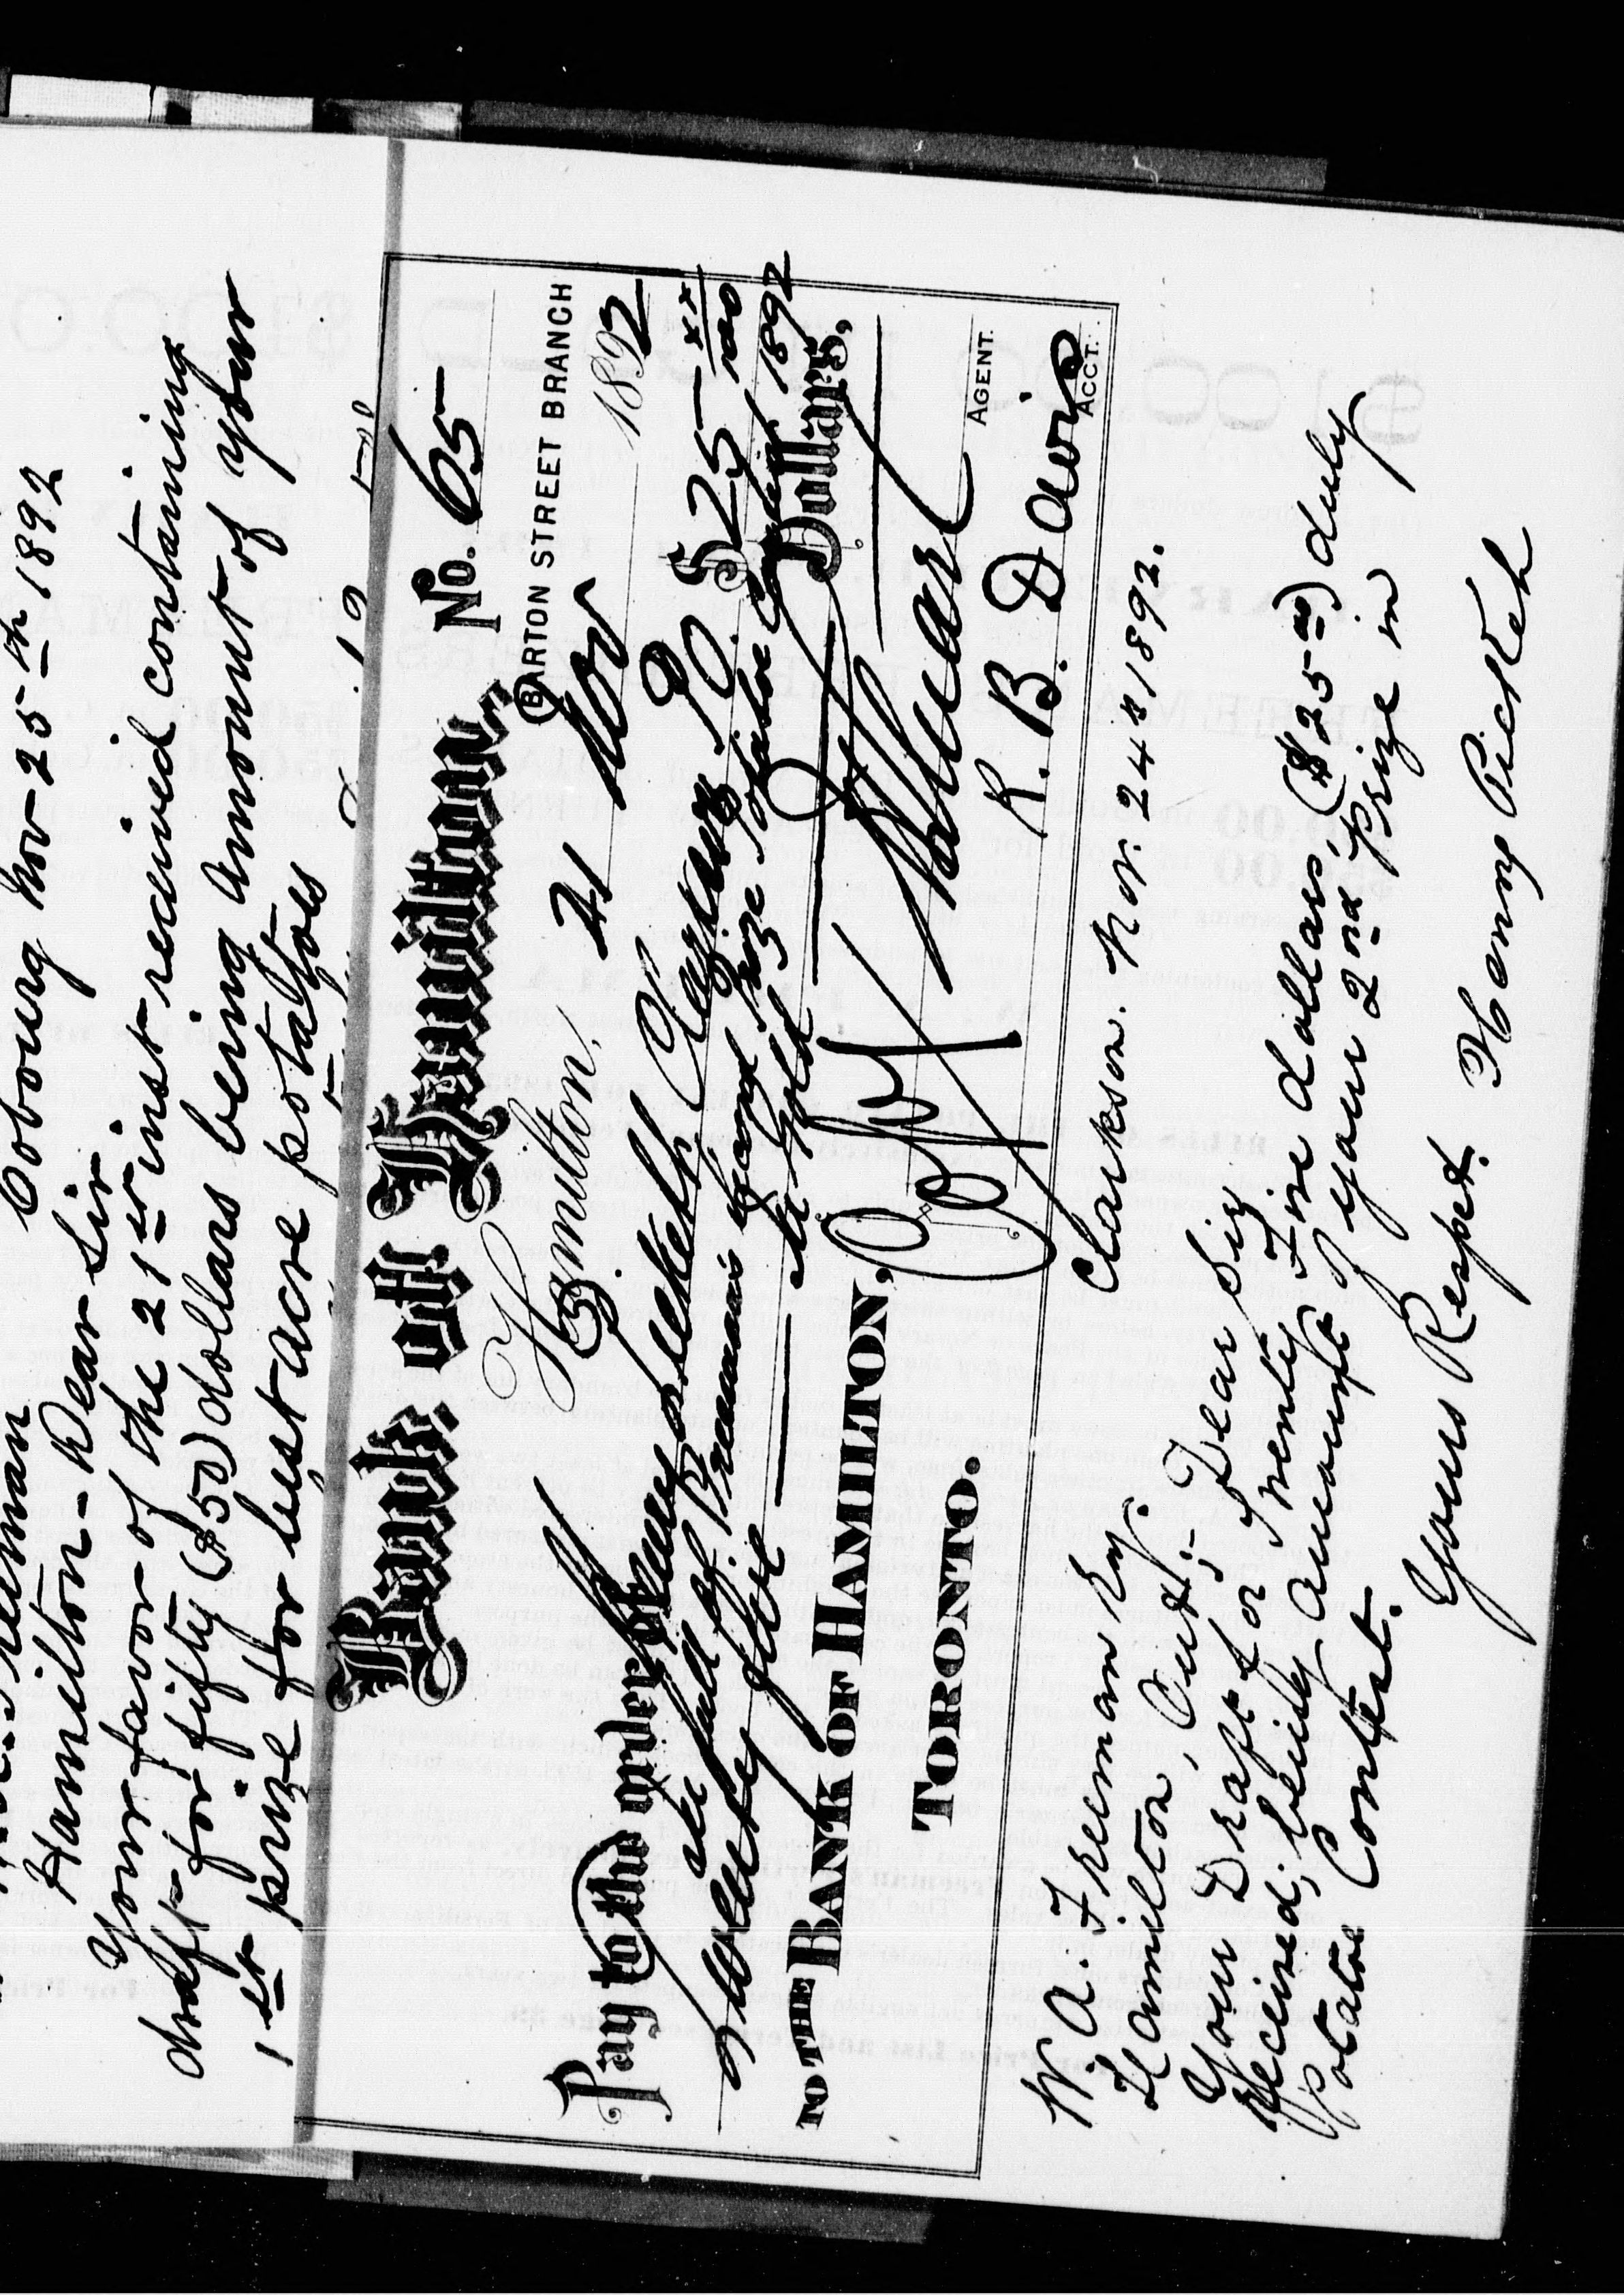 Cobourg Nov 25th 1892
Freeman
Hamilton - Dear Sir
Your favor of the 21st inst received containing
draft for fifty ($50) dollars being amount of your
1st prize for best acre potatoes
Bank of Hamilton, No. 65
BARTON STREET BRANCH
Hamilton, 21 Nov 1892
Pay to the order Henry Pickett Clarkson P.O. $25 xx/100
in full of Premium Second Prize Potatoe 1892
Twenty five in Gold Dollars,
TO THE BANK OF HAMILTON,
TORONTO.
AGENT.
K. B. Davis
ACCT.
Clarkson. Nov. 24th 1892.
W. A. Freeman Esq.
Hamilton, Ont;- Dear Sir
Your Draft for Twenty Five dollars, ($25 00) duly
Received; being amount of your 2nd prize in
potatoe Contest.
Yours Respct. Henry Pickett